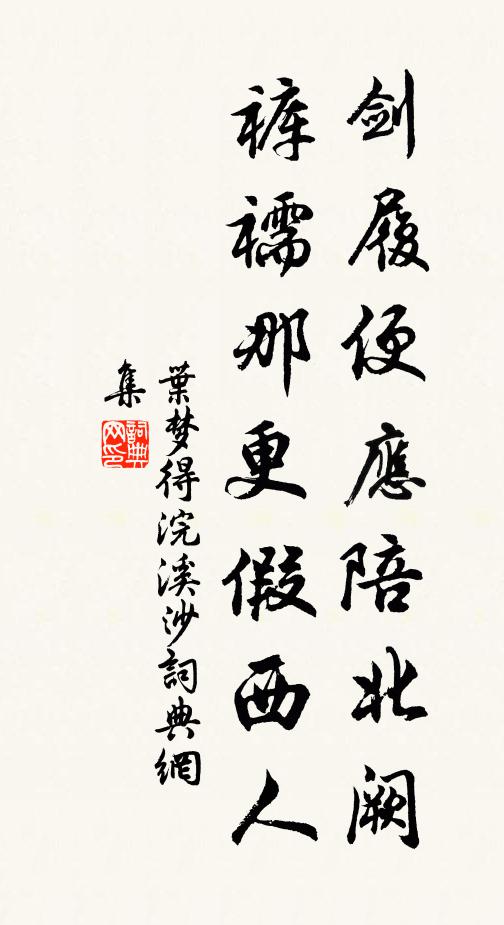 剑履便應陪北阙
裤襦那更假西人
葉梦得浣溪沙詞典網
集
詞典网印